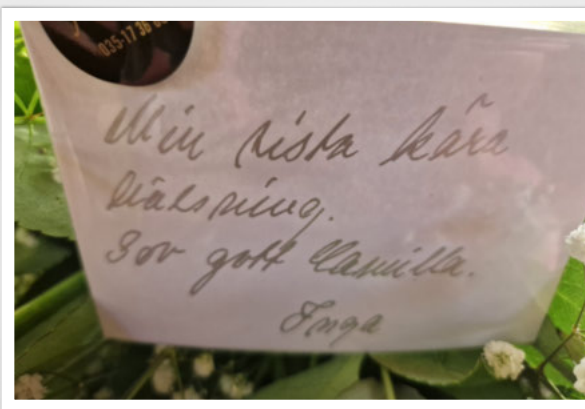 035-17 36
Min sista kära
hälsning.
Sov gott Camilla.
Inga